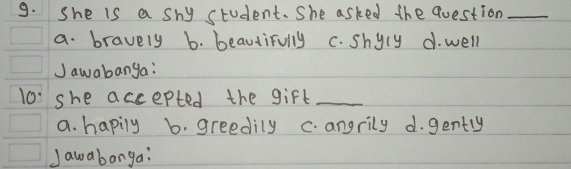 9. She is a shy student. She asked the question ___
a. bravely b. beautifully c. shyly d. well
Jawabanya:
10. She accepted the gift ___
a. hapily b. greedily c. angrily d. gently
Jawabanya: